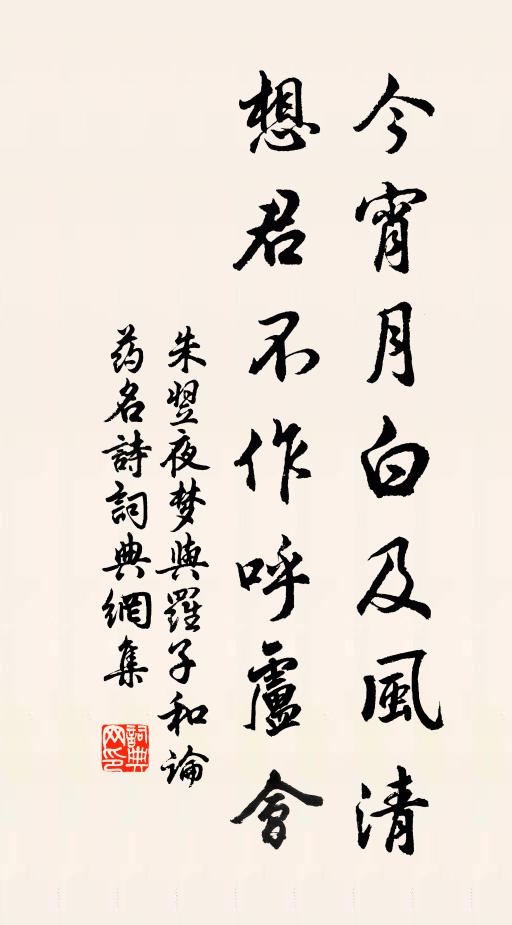 今宵月白及風清
想君不作呼盧會
朱翌夜梦與羅子和論
药名詩詞典網集
詞典网印